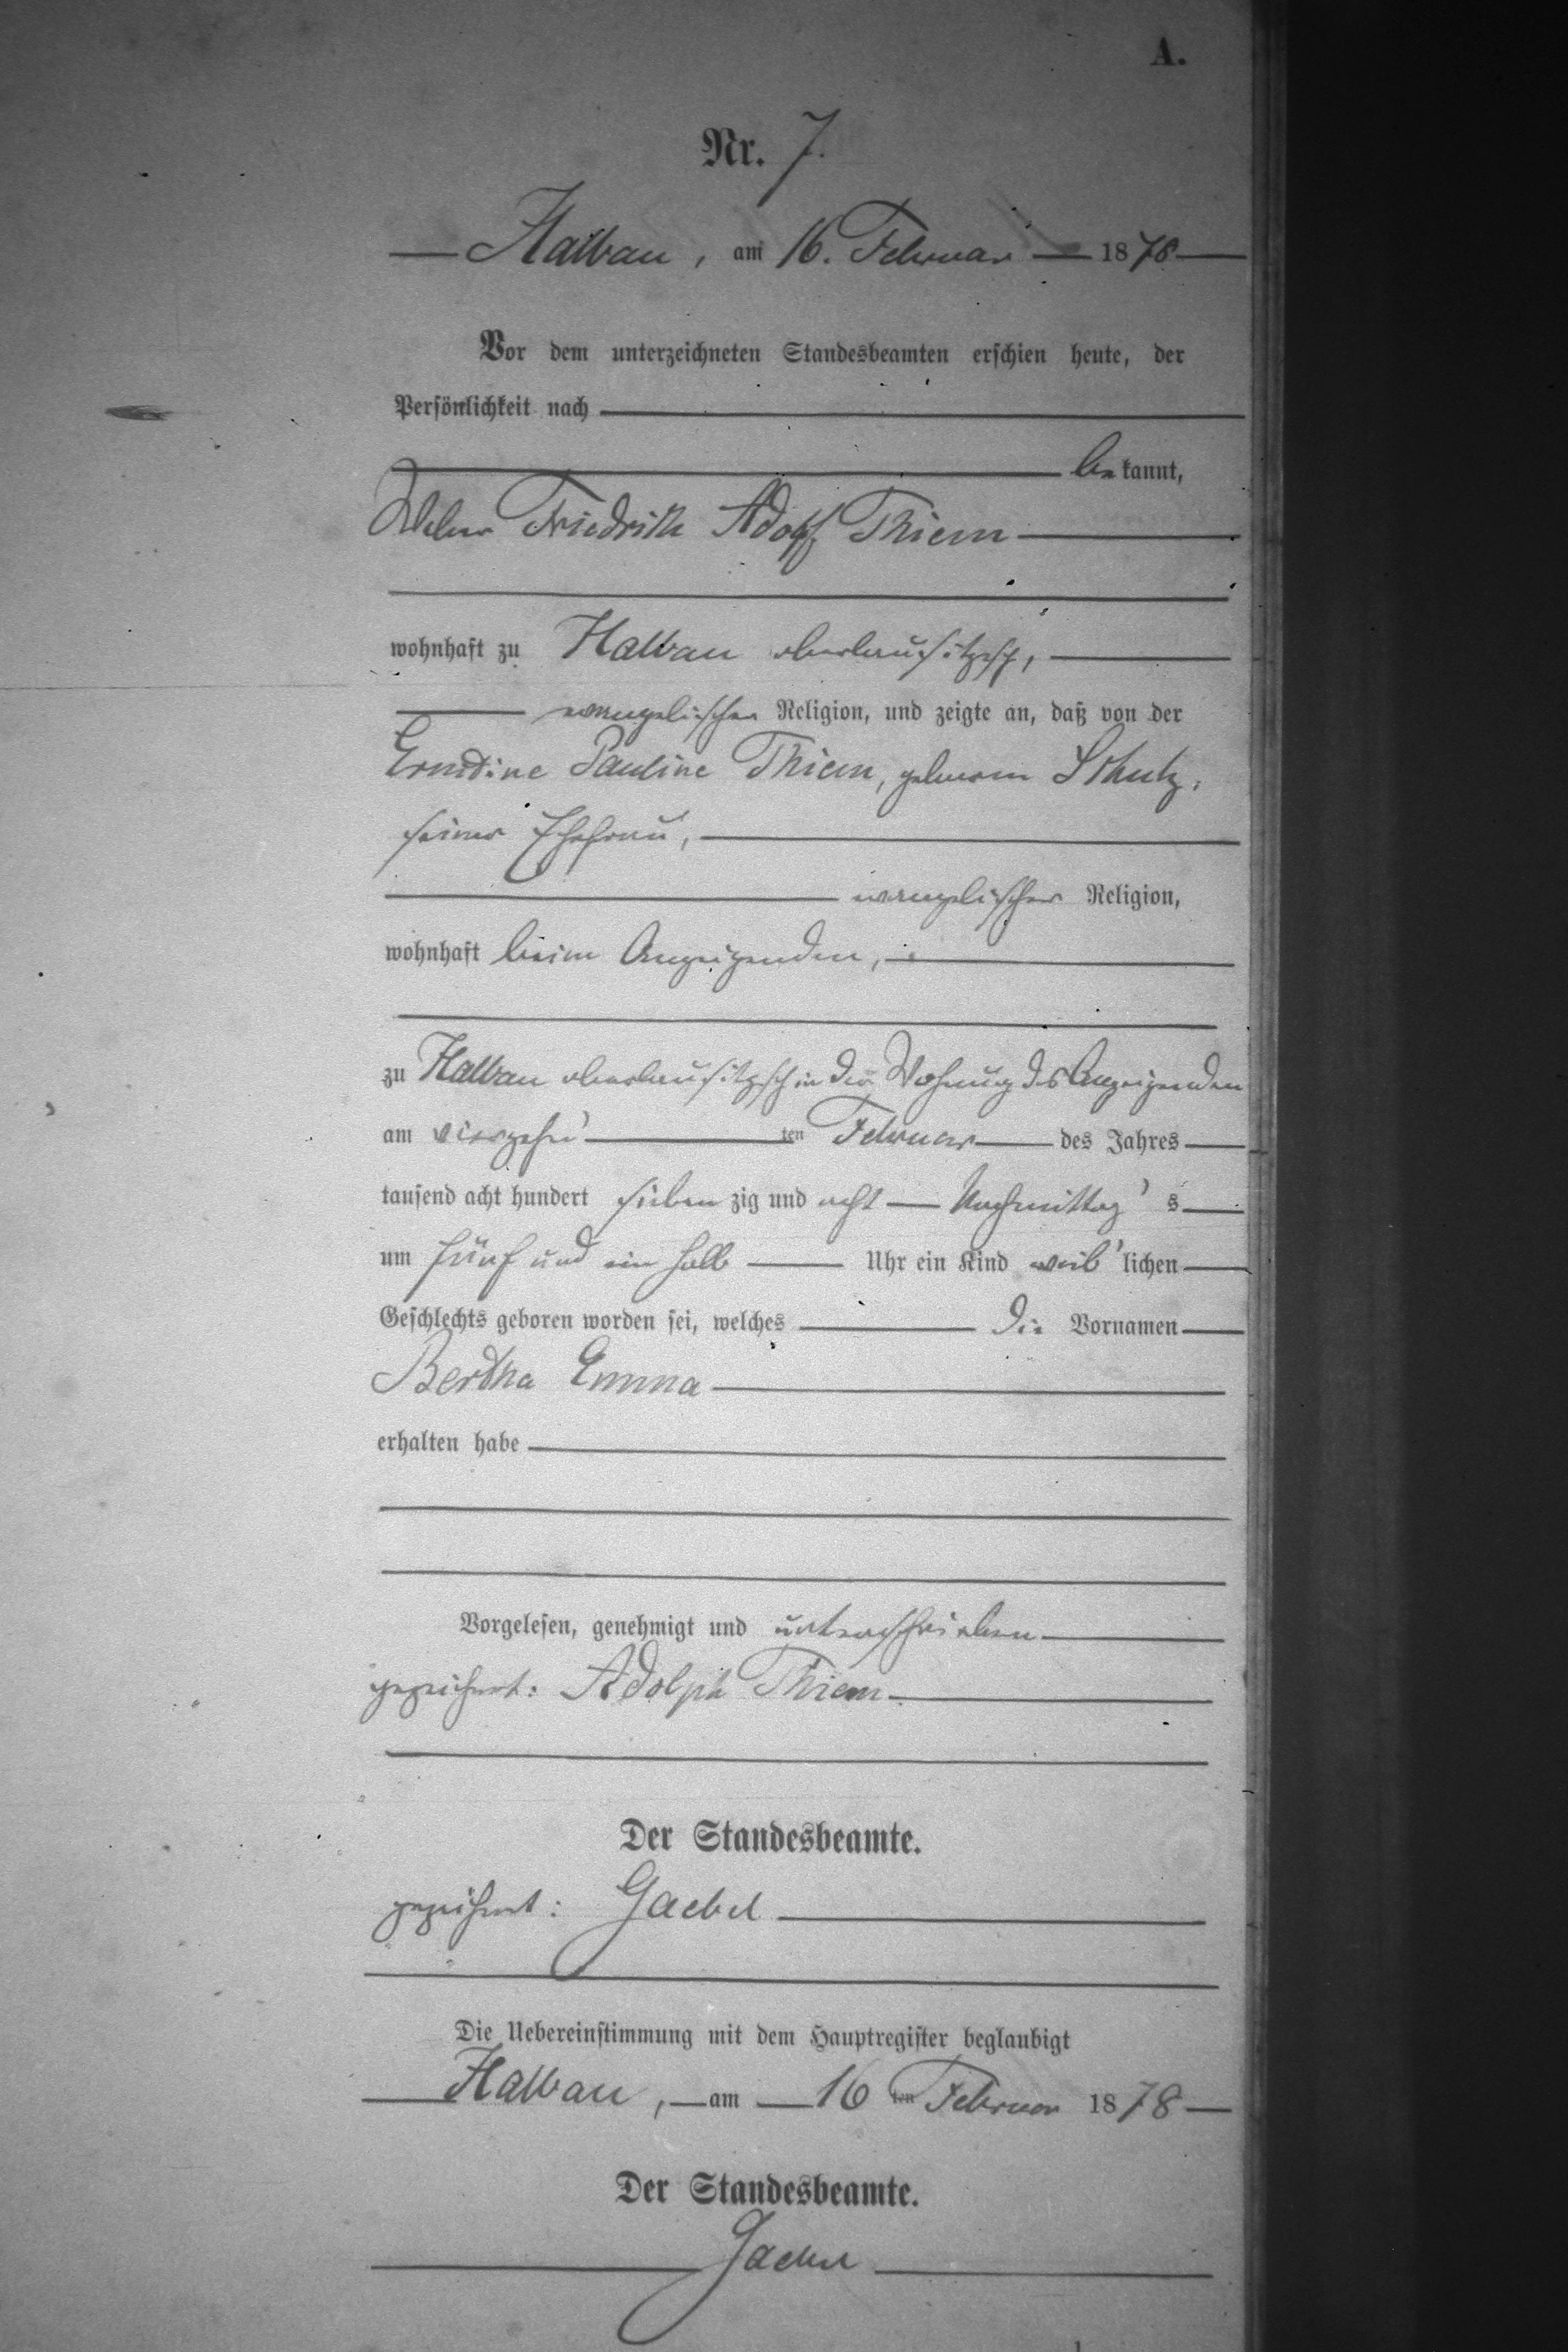 A.
Nr. 7.
Halbau, am 16. Februar 1878
Vor dem unterzeichneten Standesbeamten erschien heute, der
Persönlichkeit nach
bekannt,
Weber Friedrich Adolf Thiem
wohnhaft zu Halbau oberlausitzisch,
evangelischer Religion, und zeigte an, daß von der
Ernestine Pauline Thiem, geborenen Schulz,
seiner Ehefrau,
evangelischer Religion,
wohnhaft beim Anzeigenden,
zu Halbau oberlausitzisch in der Wohnung des Anzeigenden
am vierzehn ten Februar des Jahres
tausend acht hundert siebenzig und acht Nachmittags
um fünf und ein halb Uhr ein Kind weiblichen
Geschlechts geboren worden sei, welches die Vornamen
Bertha Emma
erhalten habe
Vorgelesen, genehmigt und unterschrieben
gezeichnet: Adolph Thiem
Der Standesbeamte.
gezeichnet: Gaebel
Die Uebereinstimmung mit dem Hauptregister beglaubigt
Halbau, am 16 ten Februar 1878
Der Standesbeamte.
Gaebel